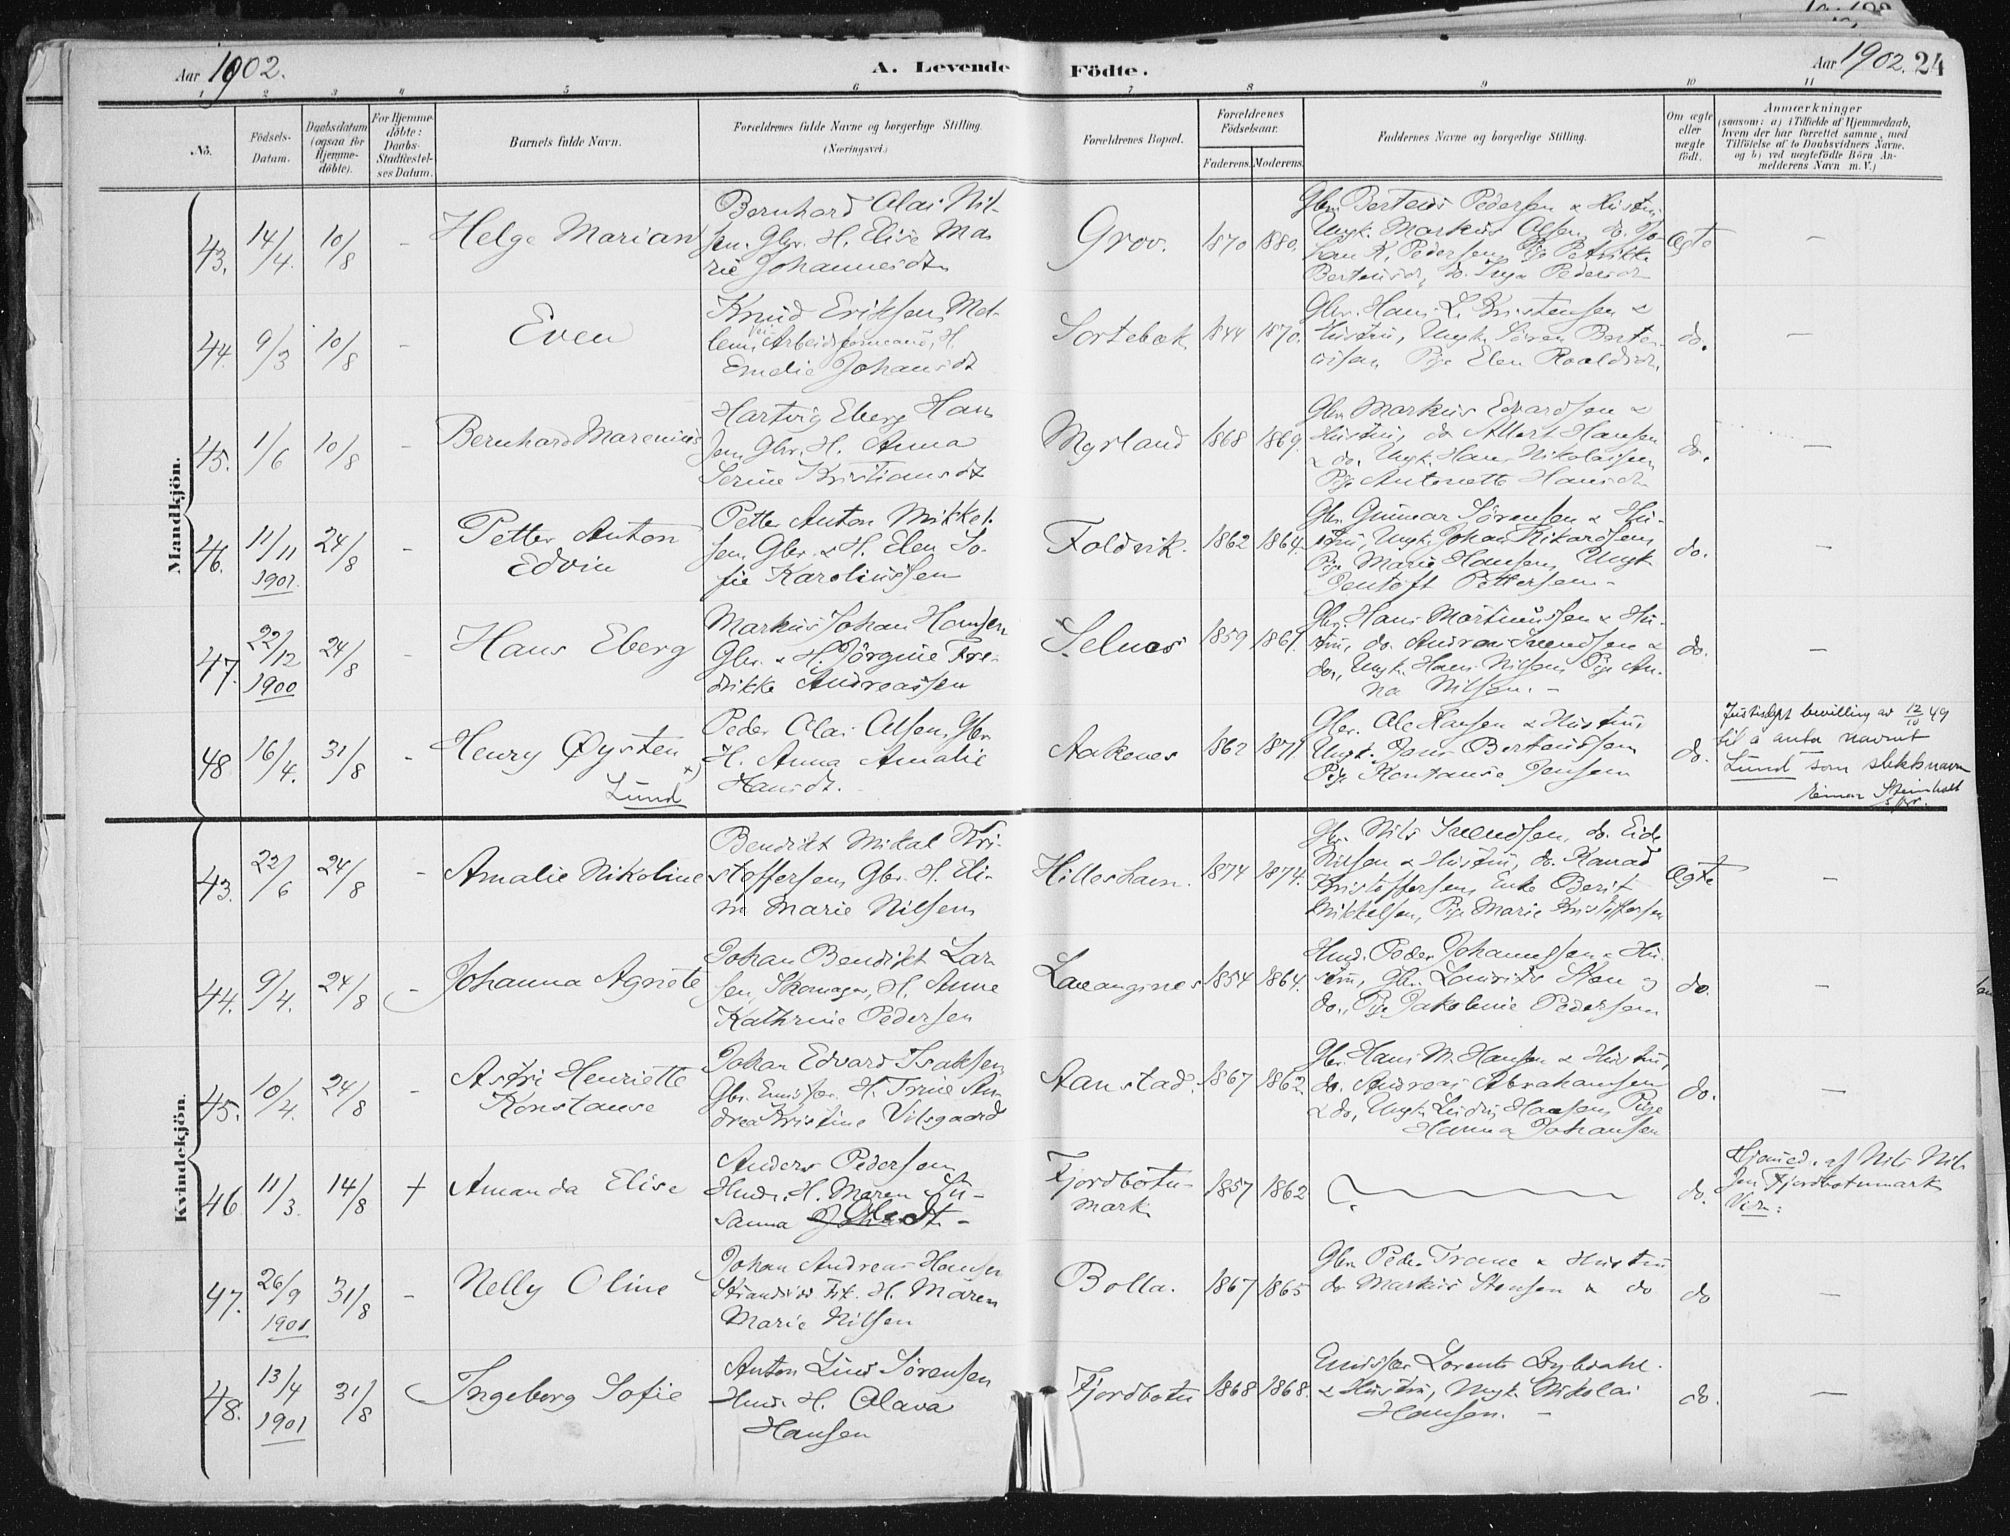 Aar 1902.
A. Levende Födte.
Aar 1902. 24
1 2 3 4 5 6 7 8 9 10 11
No.
Födsels-Datum.
Daabsdatum (ogsaa for Hjemme-döbte).
For Hjemme-döbte: Daabs-Stadfæstel-ses Datum.
Barnets fulde Navn.
Forældrenes fulde Navne og borgerlige Stilling. (Næringsvei.)
Forældrenes Bopæl.
Forældrenes Födselsaar.
Faderens. Moderens.
Faddernes Navne og borgerlige Stilling.
Om ægte eller uægte födt.
Anmærkninger
(saasom: a) i Tilfælde af Hjemmedaab,
hvem der har forrettet samme, med
Tilföielse af to Daabsvidners Navne.
og b) ved uægtefödte Börn An-
melderens Navn m. V.)
Mandkjön.
43. 14/4. 10/8 - Helge Marian
Bernhard Olai Nil-
sen. Gbr. H. Elise Ma
rie Johannesdt.
Grov. 1870 1880.
Gbr. Berteus Pedersen & Hustru
Ungk. Markus Olsen, do. Jo-
han K. Pedersen, Pige Petrikke
Berteusd, do. Inga Pedersd.
Ægte -
44. 9/3 10/8 - Even
Knud Eriksen Mel-
lem, Veiarbeidsformand, H.
Emelie Johansdt
Sortebæk 1844 1870.
Gbr. Hans L. Kristensen &
Hustru, Ungk. Søren Berte-
ussen, Pige Elen Roaldsdt.
do. -
45. 1/6 10/8 - Bernhard Marenius
Hartvig Eberg Han
sen, Gbr. H. Anna
Serine Kristiansdt
Myrland 1868 1869.
Gbr. Markus Edvardsen &
Hustru, do Albert Hansen
& do. Ungk. Hans Nikolaisen
Pige Antonette Hansdt.
do. -
46. 11/11 1901. 24/8 - Petter Anton
Edvin
Petter Anton Mikkel-
sen, Gbr. & H. Elen So-
fie Karoliussen
Foldvik. 1862 1864.
Gbr. Gunnar Sørensen & Hu-
stru, Ungk. Johan Rikardsen,
Pige Marie Hansen, Ungk
Bentoft Pettersen. -
do. -
47. 22/12 1900 24/8 - Hans Eberg
Markus Johan Hansen
Gbr. & H. Jørgine Fre-
drikke Andreassen
Selnes 1859 1861.
Gbr. Hans Mortinussen & Hu-
stru, do. Andreas Svendsen &
do., Ungk. Hans Nilsen, Pige An-
na Nilsen. -
do. -
48 16/4. 31/8 - Henry Øysten x)
Lund
Peder Olai Olsen, Gbr
H. Anna Amalie
Hansdt.
Aakenes 1862 1871
Gbr. Ole Hansen & Hustru
Ungk. Jens Berteussen
Pige Konstanse Jensen
do.
Justisdept bevilling av 12/10 49
til å anta navnet
Lund som slektsnavn
Einar Steinholt
s.pr.
Kvindekjön.
43. 22/6 24/8 - Amalie Nikoline
Bendikt Mikal Kri-
stoffersen, Gbr. H. Eli-
na Marie Nilsen
Hilleshamn. 1874 1874.
Gbr. Nils Svendsen, do. Eide
Nilsen & Hustru, do. Konrad
Kristoffersen, Enke Berit
Mikkelsen, Pige Marie Kristoffersen
Ægte -
44. 9/4. 24/8 - Johanna Agnete
Johan Bendikt Lar
sen, Skomager, H. Anne
Kathrine Pedersen
Lavangsnes 1854 1864.
Hmd. Peder Johannesen & Hu-
stru, Gbr. Lauritz Sten og
do., Pige Jakobine Pedersen
do. -
45. 10/4. 24/8 - Astri Henriette
Konstanse
Johan Edvard Isaksen
Gbr. Emissær. H. Trine An
drea Kristine Vilsgaard
Aanstad. 1867 1862
Gbr. Hans M. Hansen & Hustru,
do. Andreas Abrahamsen
& do., Ungk. Ludvig Hansen, Pige
Hanna Johansen
do. -
46 11/3. 14/8 + Amanda Elise
Anders Pedersen
Hmd. H. Maren Su-
sanna Olsdt -
Fjordbotn-
mark. 1857 1862
do.
Hjemmed. af Nils Nil-
sen Fjordbotnmark
47. 26/9 1901 31/8 - Nelly Oline
Johan Andreas Hansen
Strandsid. Fix. H. Maren
Marie Nilsen
Bolla. 1867 1865
Gbr. Peder Trane & Hustru
do Markus Stensen & do
do -
48. 13/4 1901 31/8 - Ingeborg Sofie
Anton Lind Sørensen
Hmd. H. Olava
Hansen
Fjordbotn 1868 1868.
Emissær Lorents
& Hustru, Ungk. Nikolai
Hansen. -
do. -